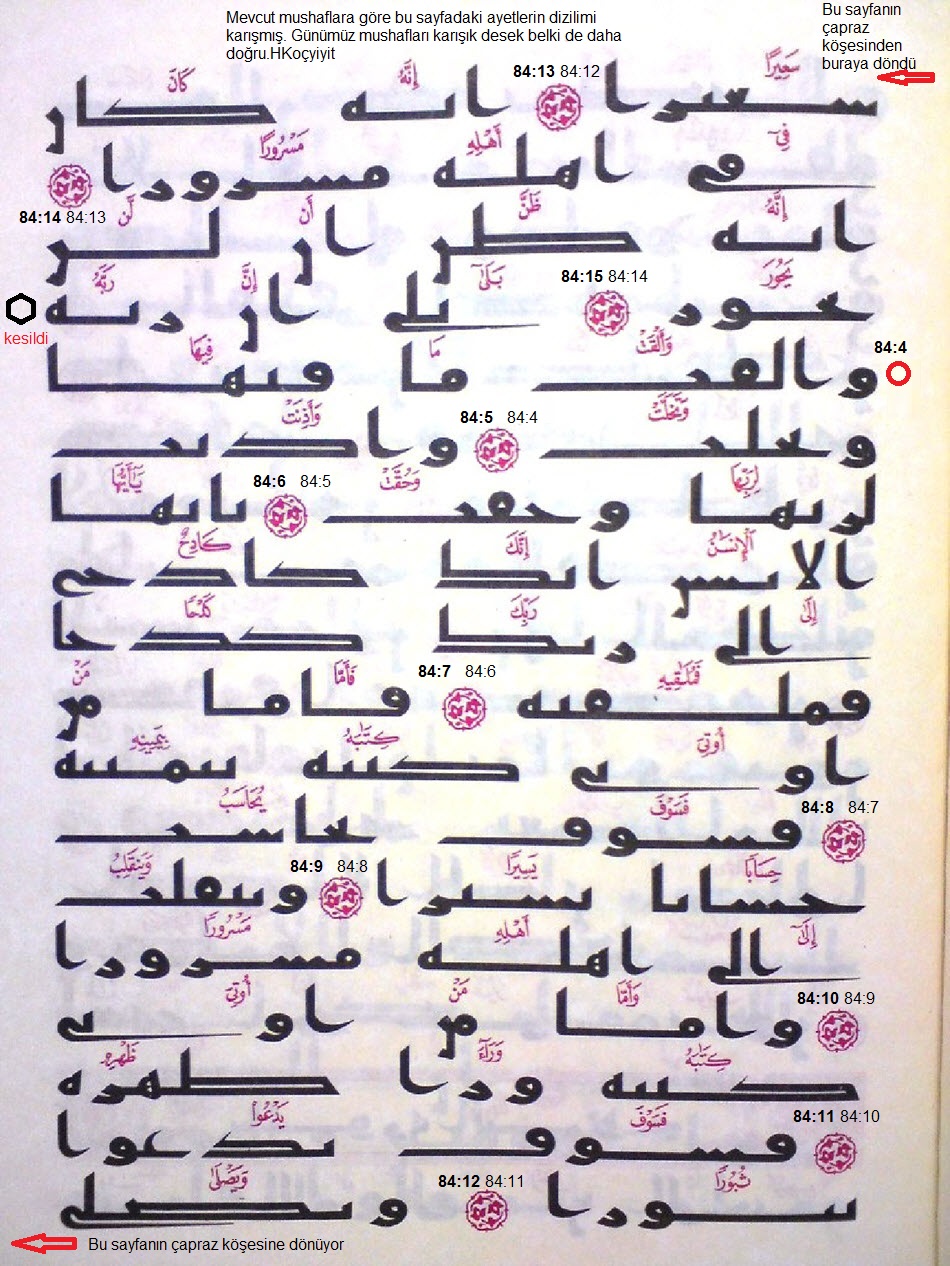 Mevcut mushaflara göre bu sayfadaki ayetlerin dizilimi
karışmış. Günümüz mushafları karışık desek belki de daha
doğru.HKoçyiyit
Bu sayfanın
çapraz
köşesinden
buraya döndü
سَعِيرًا 84:12 84:13 إِنَّهُ كَانَ
سعيرا انه كان
فِىٓ أَهْلِهِ مَسْرُورًا
في اهله مسرورا
84:14 84:13
إِنَّهُ ظَنَّ أَن لَّن
انه ظن ان لن
يَحُورَ 84:15 84:14 بَلَىٰٓ إِنَّ رَبَّهُ
يحور بلى ان ربه
kesildi
84:4
وَأَلْقَتْ مَا فِيهَا
والقت ما فيها
وَتَخَلَّتْ 84:5 84:4 وَأَذِنَتْ
وتخلت واذنت
لِرَبِّهَا وَحُقَّتْ 84:6 84:5 يَٰٓأَيُّهَا
لربها وحقت يايها
ٱلْإِنسَٰنُ إِنَّكَ كَادِحٌ
الانسن انك كادح
إِلَىٰ رَبِّكَ كَدْحًا
الى ربك كدحا
فَمُلَٰقِيهِ 84:7 84:6 فَأَمَّا مَنْ
فملقيه فاما من
أُوتِىَ كِتَٰبَهُ بِيَمِينِهِ
اوتي كتبه بيمينه
84:8 84:7 فَسَوْفَ يُحَاسَبُ
فسوف يحاسب
حِسَابًا يَسِيرًا 84:9 84:8 وَيَنقَلِبُ
حسابا يسيرا وينقلب
إِلَىٰٓ أَهْلِهِ مَسْرُورًا
الى اهله مسرورا
84:10 84:9 وَأَمَّا مَنْ أُوتِىَ
واما من اوتي
كِتَٰبَهُ وَرَآءَ ظَهْرِهِ
كتبه ورا ظهره
84:11 84:10 فَسَوْفَ يَدْعُوا۟
فسوف يدعوا
ثُبُورًا 84:12 84:11 وَيَصْلَىٰ
ثبورا ويصلى
Bu sayfanın çapraz köşesine dönüyor